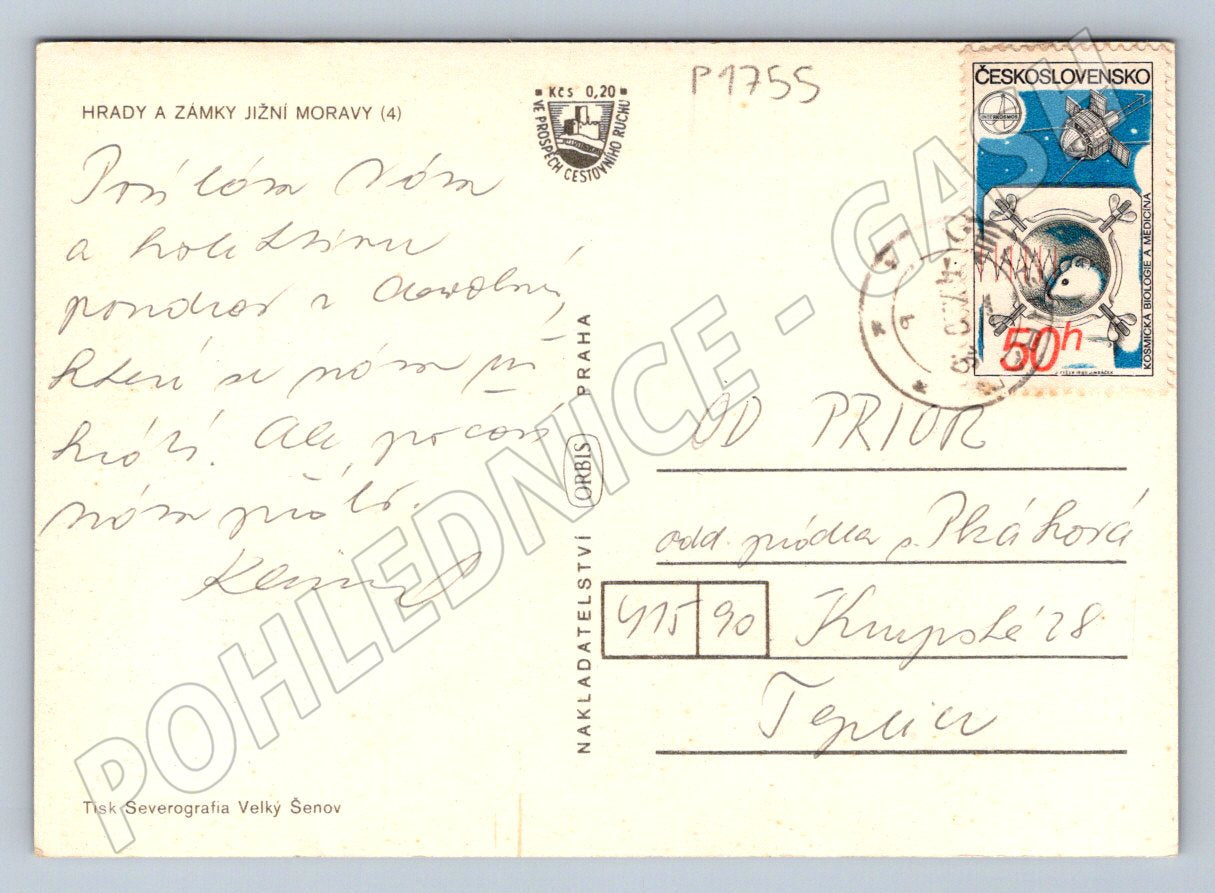 HRADY A ZÁMKY JIŽNÍ MORAVY (4)
Kčs 0,20
VE PROSPĚCH CESTOVNÍHO RUCHU
P1755
ČESKOSLOVENSKO
INTERKOSMOS
KOSMICKÁ BIOLOGIE A MEDICÍNA
50h
Posílám Vám
a kolektivu
pozdrav z dovolené,
která se nám
krátí. Ale počasí
nám přálo.
NAKLADATELSTVÍ ORBIS PRAHA
OD PRIOR
odd. prádla p. Plháková
415 90 Krupská 28
Teplice
Tisk Severografia Velký Šenov
POHLEDNICE - GASH